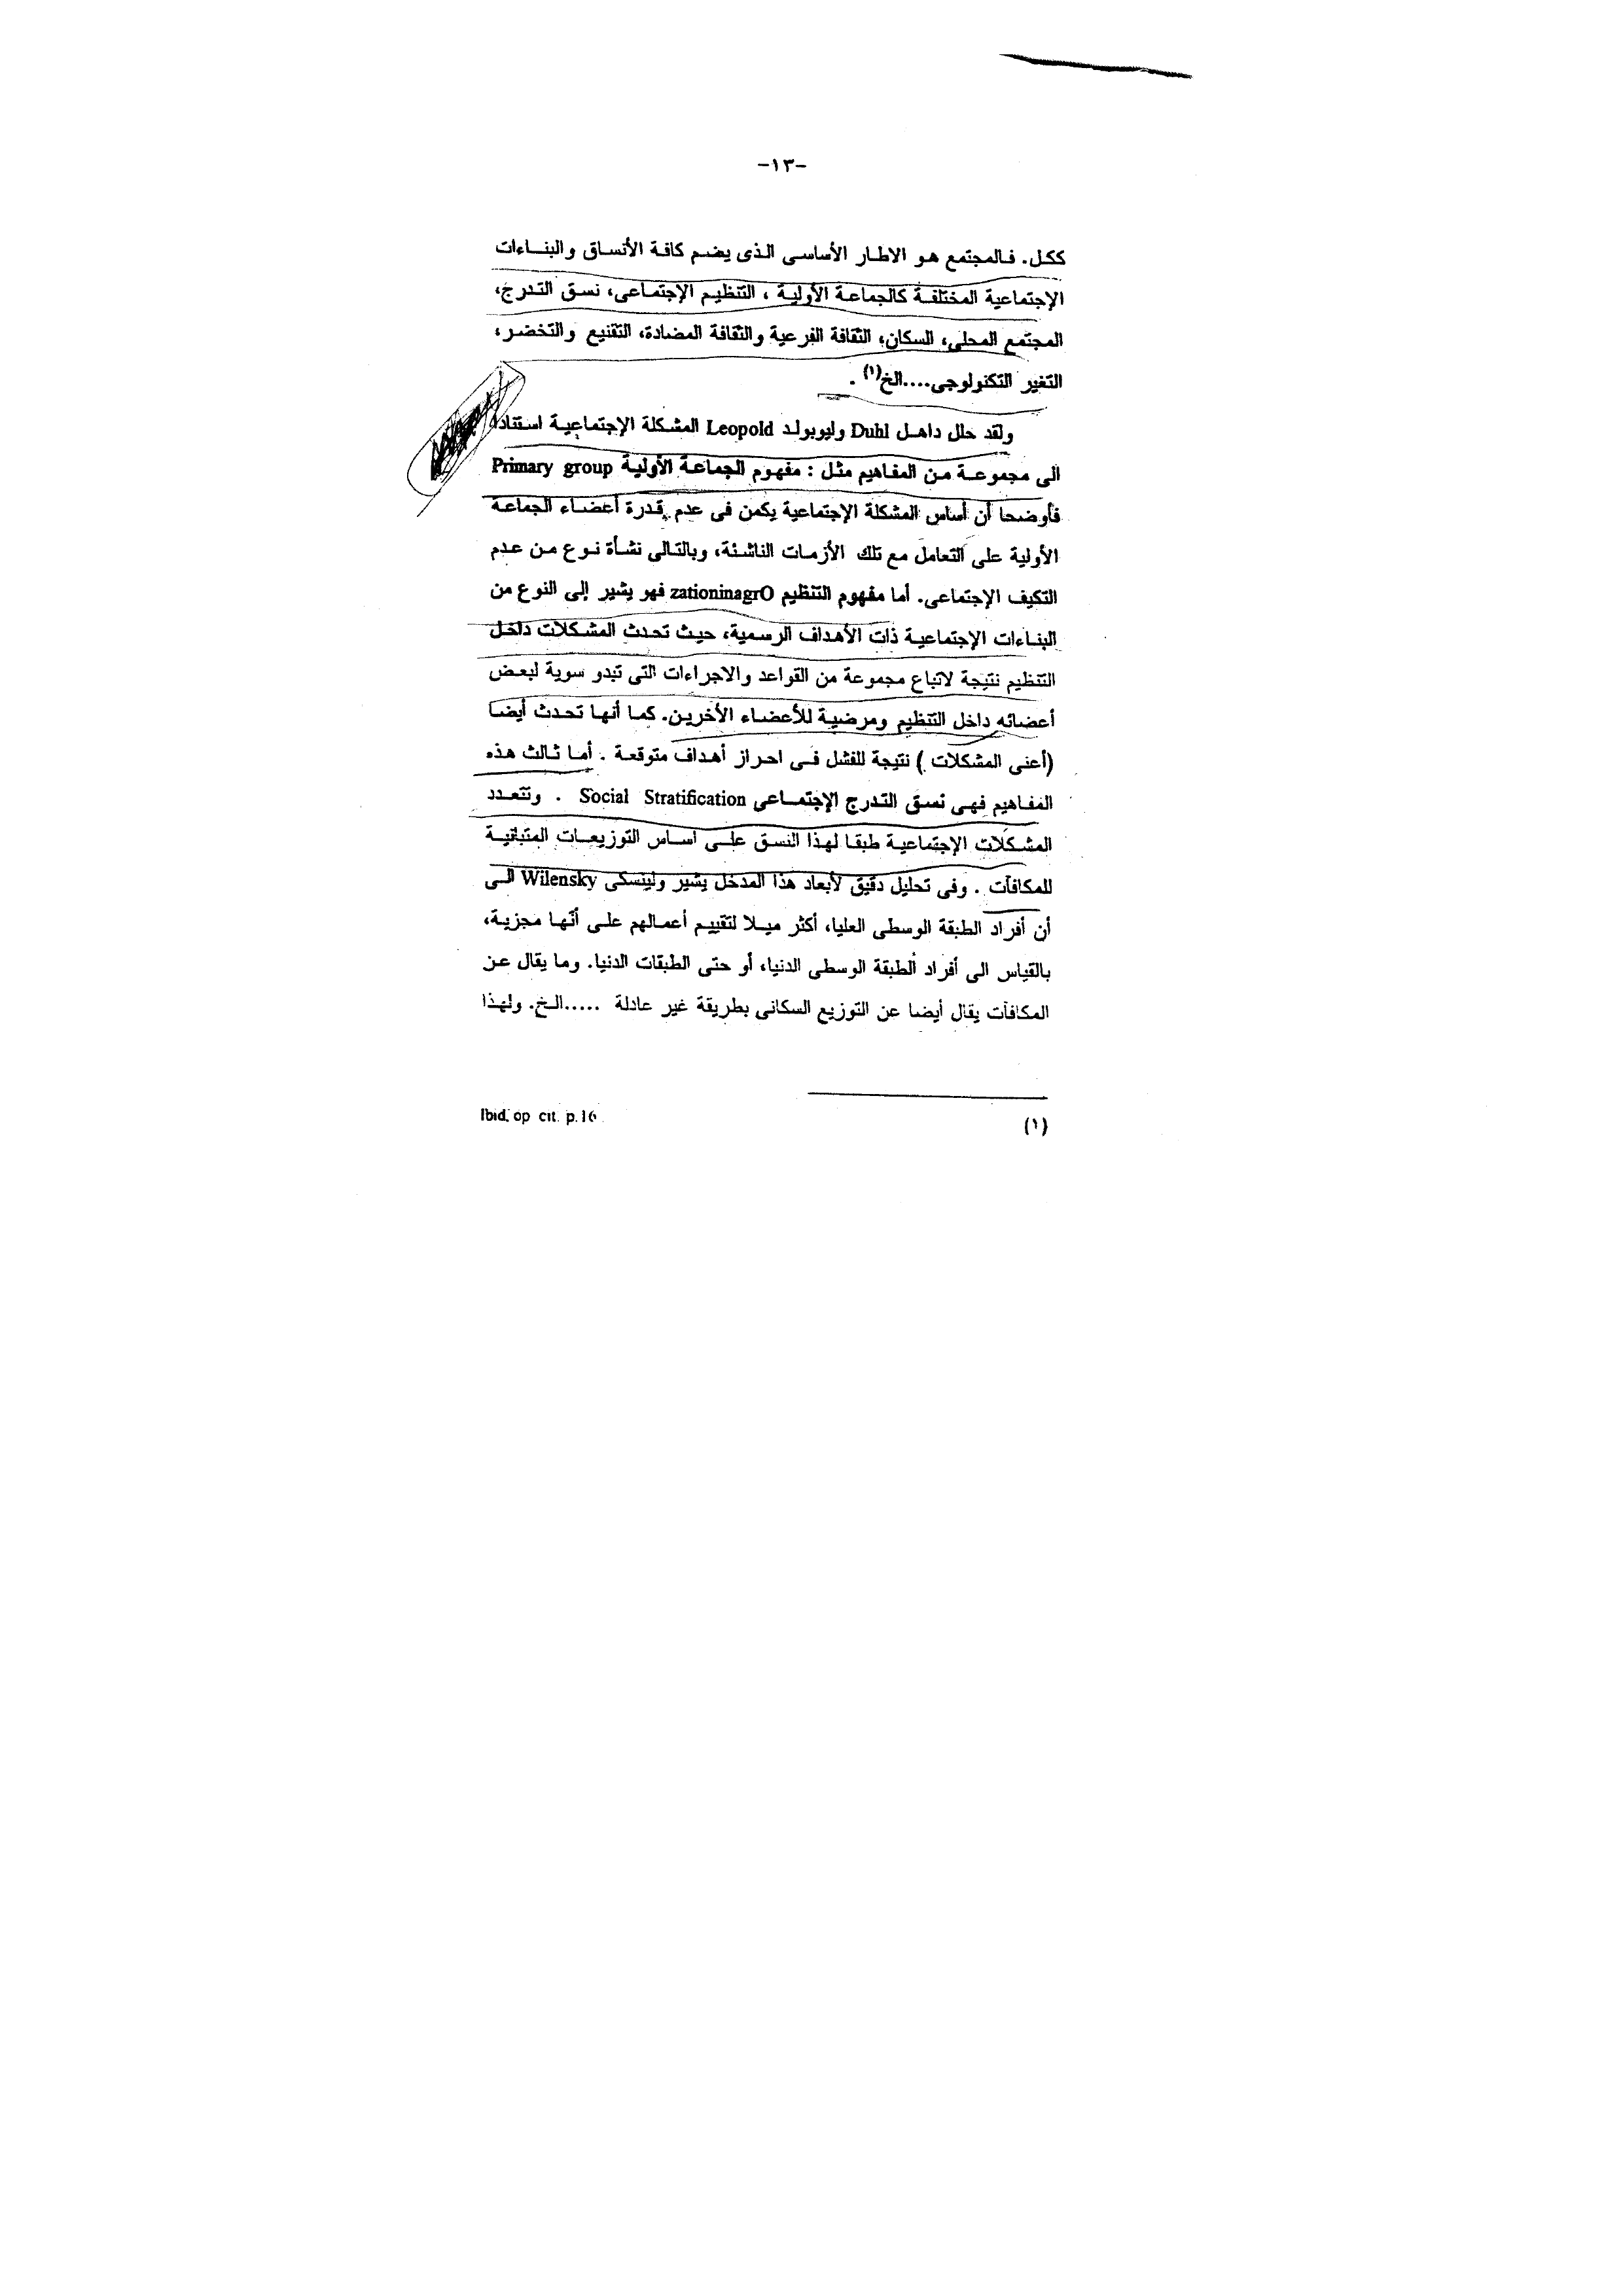 -١٣-
ككل. فالمجتمع هو الاطار الأساسى الذى يضم كافة الأنساق والبناءات
الإجتماعية المختلفة كالجماعة الأولية ، التنظيم الإجتماعى، نسق التدرج،
المجتمع المحلى، السكان، الثقافة الفرعية والثقافة المضادة، التقنيع والتخضر،
التغير التكنولوجى....الخ(١) .
ولقد حلل داهل Duhl وليوبولد Leopold المشكلة الإجتماعية استنادا
الى مجموعة من المفاهيم مثل : مفهوم الجماعة الأولية Primary group
فأوضحا أن أساس المشكلة الإجتماعية يكمن فى عدم قدرة أعضاء الجماعة
الأولية على التعامل مع تلك الأزمات الناشئة، وبالتالى نشأة نوع من عدم
التكيف الإجتماعى. أما مفهوم التنظيم zationinagrO فهو يشير إلى النوع من
البناءات الإجتماعية ذات الأهداف الرسمية، حيث تحدث المشكلات داخل
التنظيم نتيجة لاتباع مجموعة من القواعد والاجراءات التى تبدو سوية لبعض
أعضائه داخل التنظيم ومرضية للأعضاء الأخرين. كما أنها تحدث أيضا
(أعنى المشكلات ) نتيجة للفشل فى احراز أهداف متوقعة . أما ثالث هذه
المفاهيم فهى نسق التدرج الإجتماعى Social Stratification . وتتعدد
المشكلات الإجتماعية طبقا لهذا النسق على اساس التوزيعات المتباينة
للمكافآت . وفى تحليل دقيق لأبعاد هذا المدخل يشير ولينسكى Wilensky الى
أن أفراد الطبقة الوسطى العليا، أكثر ميلا لتقييم أعمالهم على أنها مجزية،
بالقياس الى أفراد الطبقة الوسطى الدنيا، أو حتى الطبقات الدنيا. وما يقال عن
المكافآت يقال أيضا عن التوزيع السكانى بطريقة غير عادلة .....الخ. ولهذا
(١) Ibid. op cit. p.16